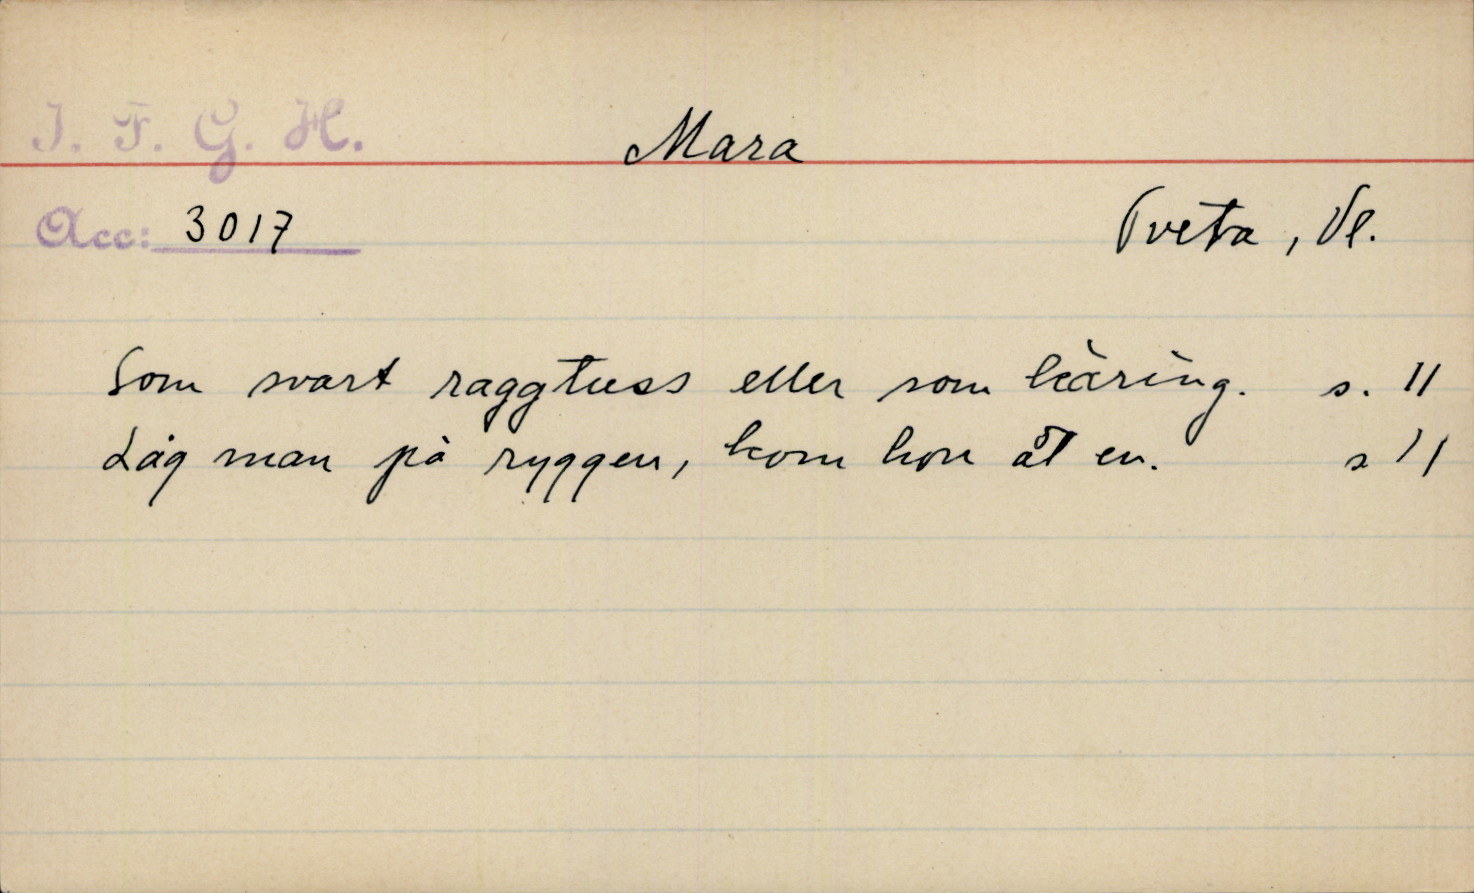 I. F. G. H.
Mara
Acc: 3017
Tveta, Vl.
Som svart raggtuss eller som käring. s. 11
Låg man på ryggen, kom hon åt en. s 11